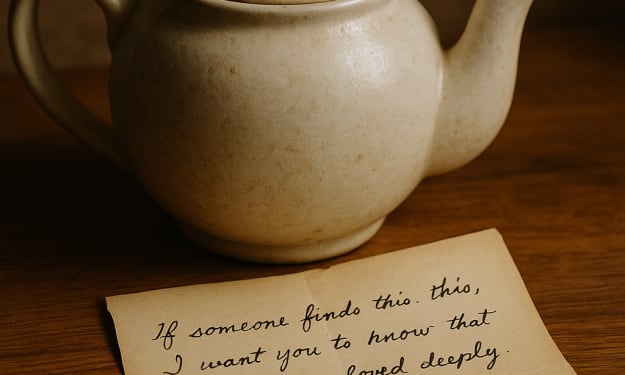 If someone finds this. this,
I want you to know that
loved deeply.